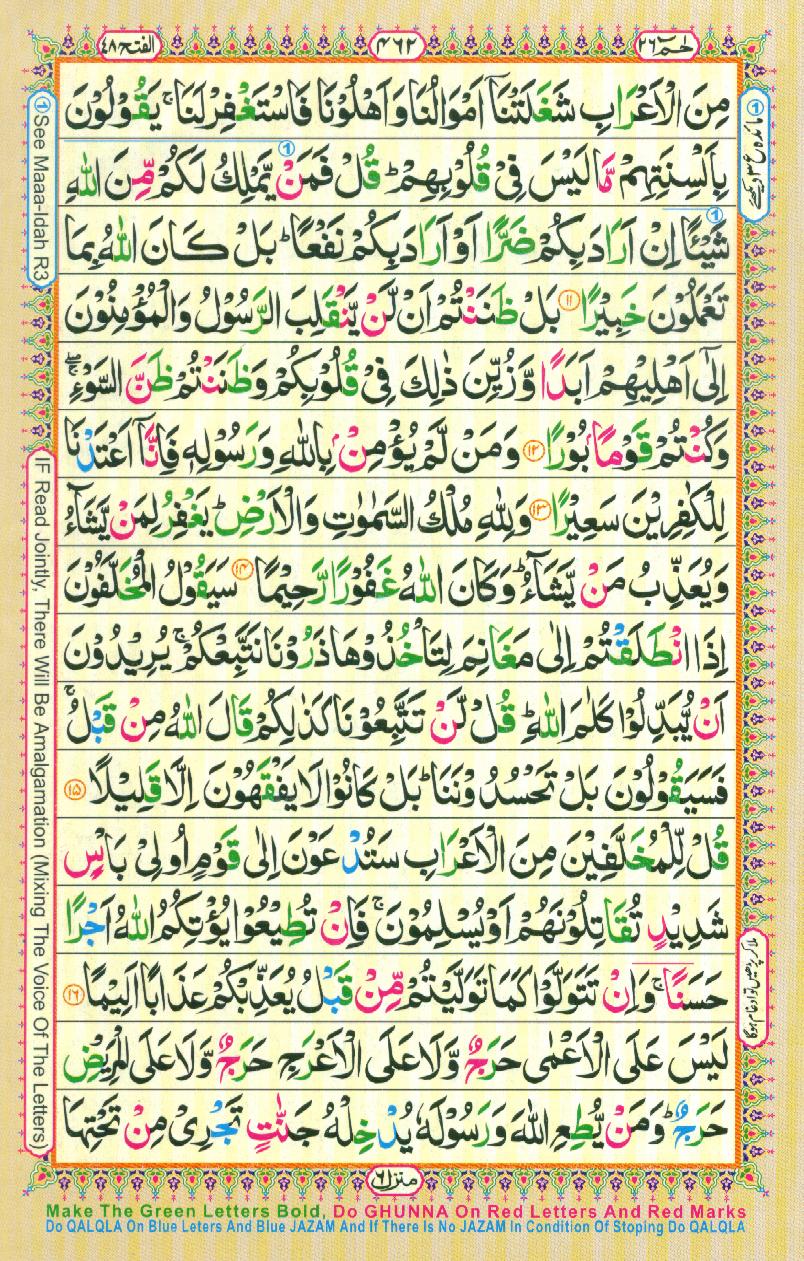 الفتح ٤٨
٤٦٢
حٰمٓ ٢٦
مِنَ الْاَعْرَابِ شَغَلَتْنَاۤ اَمْوَالُنَا وَاَهْلُوْنَا فَاسْتَغْفِرْ لَنَا ۚ يَقُوْلُوْنَ
بِاَلْسِنَتِهِمْ مَّا لَيْسَ فِيْ قُلُوْبِهِمْ ؕ قُلْ فَمَنْ يَّمْلِكُ لَكُمْ مِّنَ اللّٰهِ
شَيْـًٔا اِنْ اَرَادَ بِكُمْ ضَرًّا اَوْ اَرَادَ بِكُمْ نَفْعًا ؕ بَلْ كَانَ اللّٰهُ بِمَا
تَعْمَلُوْنَ خَبِيْرًا ۝۱۱ بَلْ ظَنَنْتُمْ اَنْ لَّنْ يَّنْقَلِبَ الرَّسُوْلُ وَالْمُؤْمِنُوْنَ
اِلٰۤى اَهْلِيْهِمْ اَبَدًا وَّزُيِّنَ ذٰلِكَ فِيْ قُلُوْبِكُمْ وَظَنَنْتُمْ ظَنَّ السَّوْءِ ۖۚ
وَكُنْتُمْ قَوْمًاۢ بُوْرًا ۝۱۲ وَمَنْ لَّمْ يُؤْمِنْۢ بِاللّٰهِ وَرَسُوْلِهٖ فَاِنَّاۤ اَعْتَدْنَا
لِلْكٰفِرِيْنَ سَعِيْرًا ۝۱۳ وَلِلّٰهِ مُلْكُ السَّمٰوٰتِ وَالْاَرْضِ ؕ يَغْفِرُ لِمَنْ يَّشَآءُ
وَيُعَذِّبُ مَنْ يَّشَآءُ ؕ وَكَانَ اللّٰهُ غَفُوْرًا رَّحِيْمًا ۝۱۴ سَيَقُوْلُ الْمُخَلَّفُوْنَ
اِذَا انْطَلَقْتُمْ اِلٰى مَغَانِمَ لِتَاْخُذُوْهَا ذَرُوْنَا نَتَّبِعْكُمْ ۚ يُرِيْدُوْنَ
اَنْ يُّبَدِّلُوْا كَلٰمَ اللّٰهِ ؕ قُلْ لَّنْ تَتَّبِعُوْنَا كَذٰلِكُمْ قَالَ اللّٰهُ مِنْ قَبْلُ ۚ
فَسَيَقُوْلُوْنَ بَلْ تَحْسُدُوْنَنَا ؕ بَلْ كَانُوْا لَا يَفْقَهُوْنَ اِلَّا قَلِيْلًا ۝۱۵
قُلْ لِّلْمُخَلَّفِيْنَ مِنَ الْاَعْرَابِ سَتُدْعَوْنَ اِلٰى قَوْمٍ اُولِيْ بَاْسٍ
شَدِيْدٍ تُقَاتِلُوْنَهُمْ اَوْ يُسْلِمُوْنَ ۚ فَاِنْ تُطِيْعُوْا يُؤْتِكُمُ اللّٰهُ اَجْرًا
حَسَنًا ۚ وَاِنْ تَتَوَلَّوْا كَمَا تَوَلَّيْتُمْ مِّنْ قَبْلُ يُعَذِّبْكُمْ عَذَابًا اَلِيْمًا ۝۱۶
لَيْسَ عَلَى الْاَعْمٰى حَرَجٌ وَّلَا عَلَى الْاَعْرَجِ حَرَجٌ وَّلَا عَلَى الْمَرِيْضِ
حَرَجٌ ؕ وَمَنْ يُّطِعِ اللّٰهَ وَرَسُوْلَهٗ يُدْخِلْهُ جَنّٰتٍ تَجْرِيْ مِنْ تَحْتِهَا
منزل ٦
① See Maaa-Idah R3
IF Read Jointly, There Will Be Amalgamation (Mixing The Voice Of The Letters)
Make The Green Letters Bold, Do GHUNNA On Red Letters And Red Marks
Do QALQLA On Blue Leters And Blue JAZAM And If There Is No JAZAM In Condition Of Stoping Do QALQLA